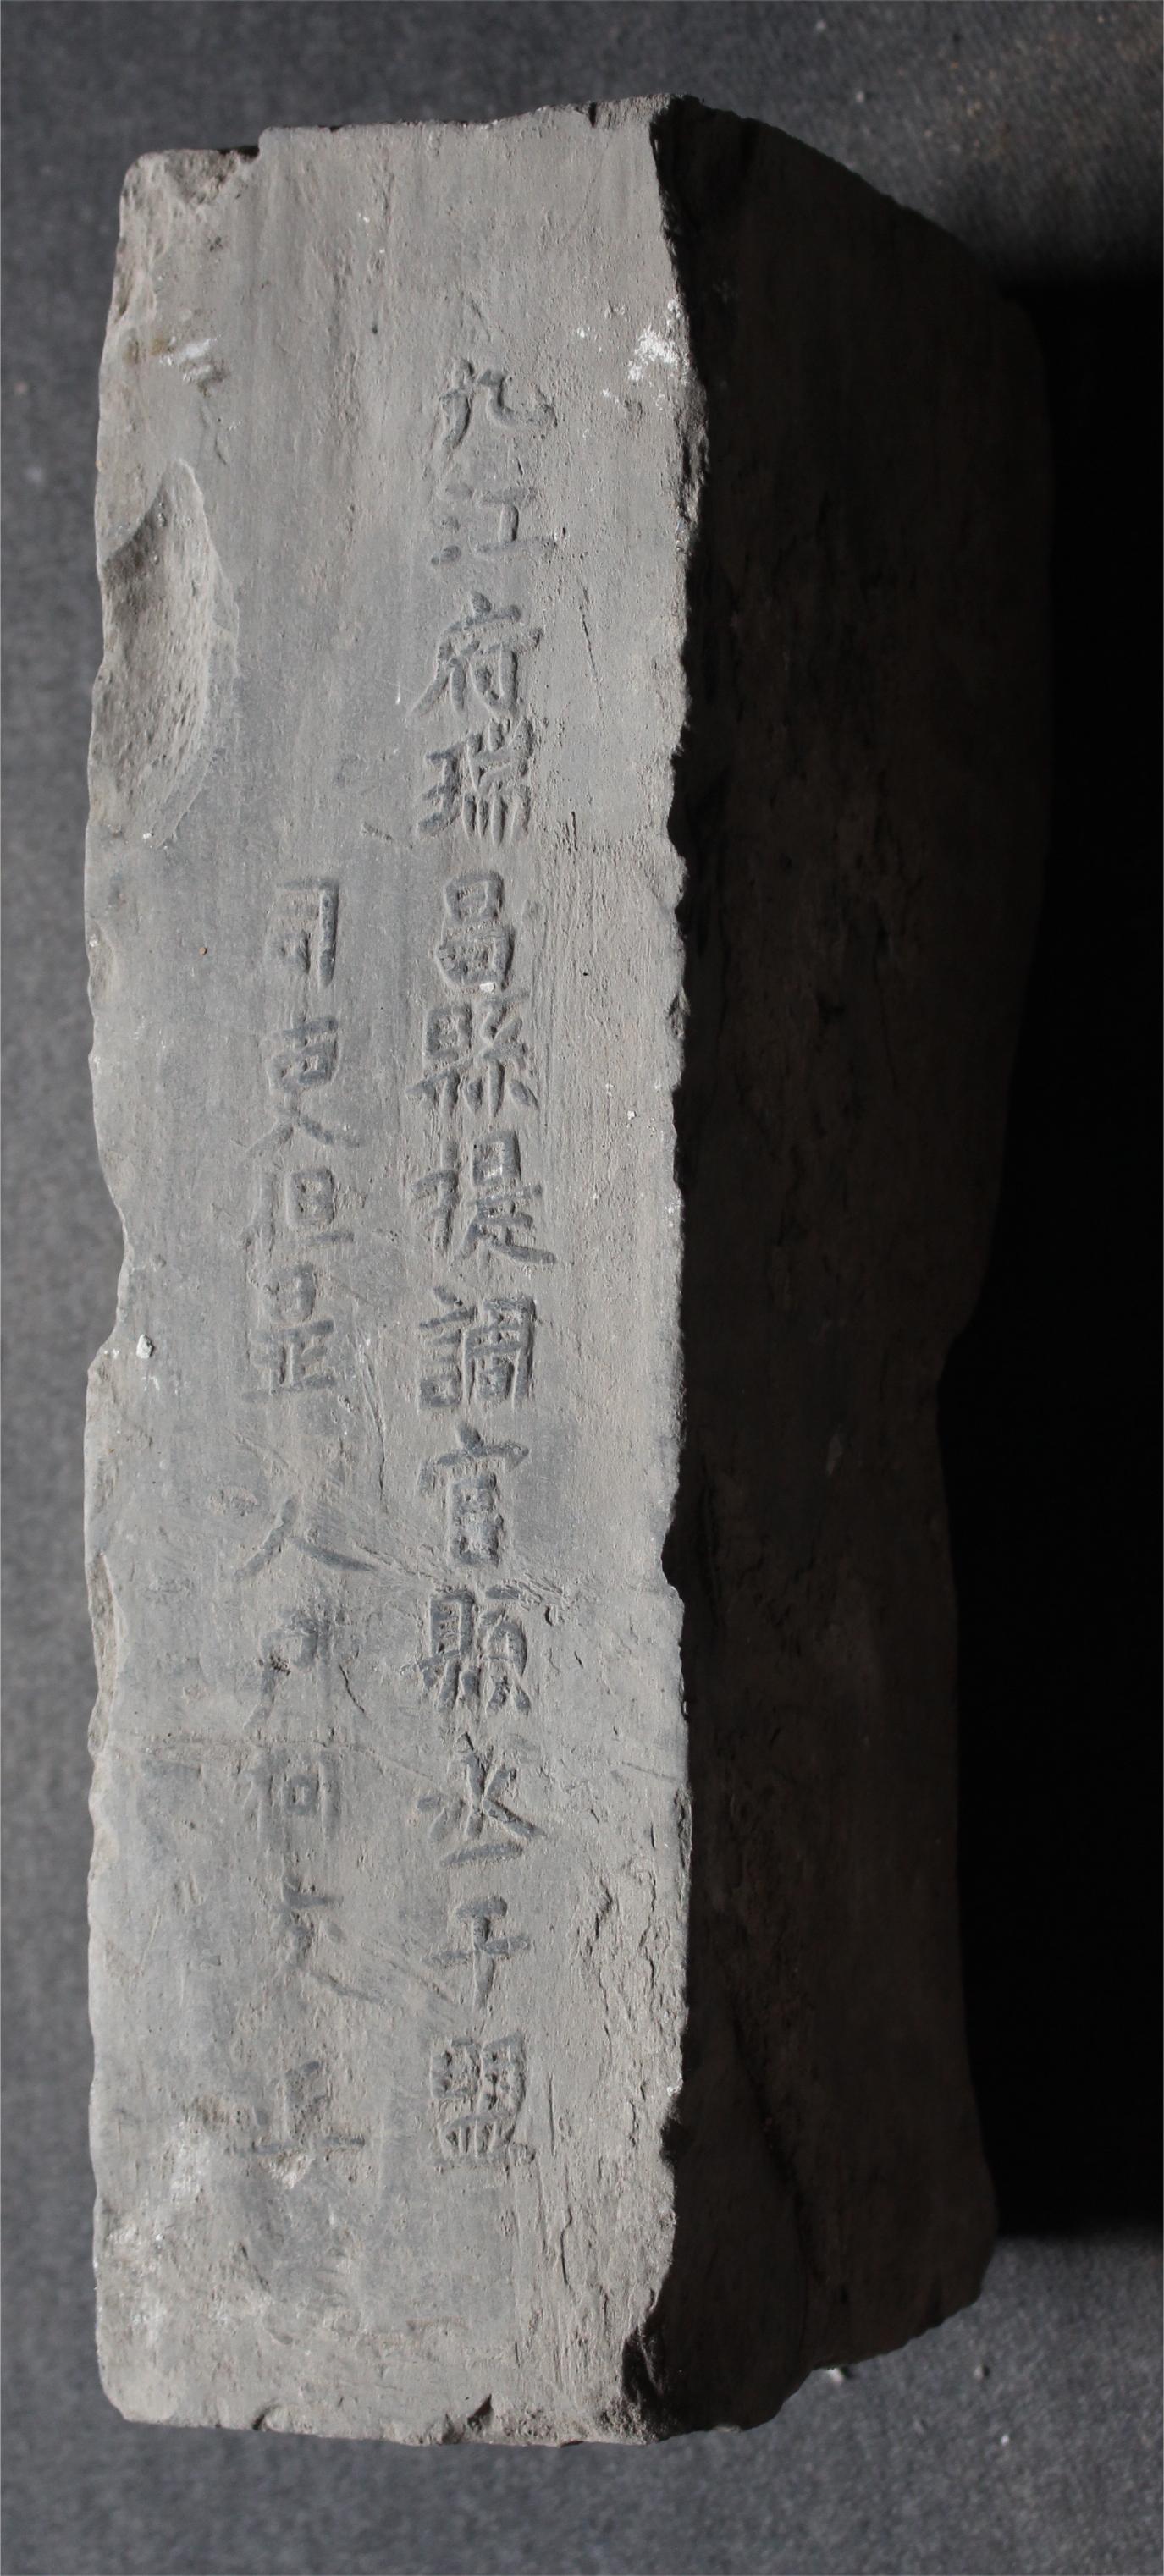 九江府瑞昌縣提調官縣丞于盟
司吏但是人戶何大